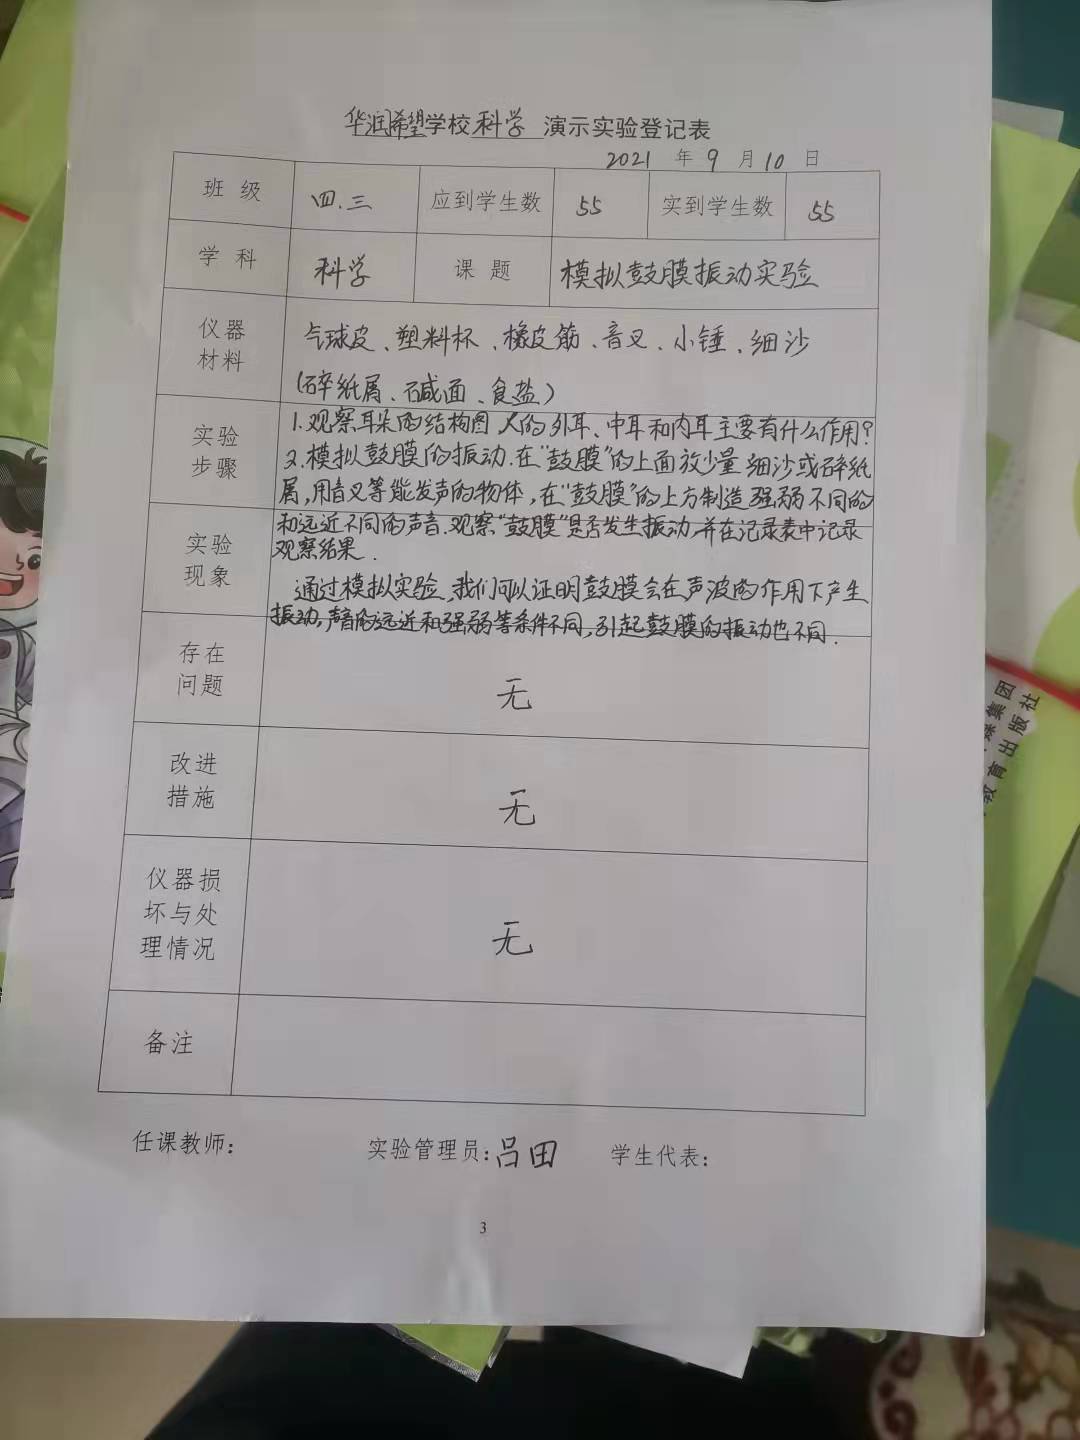 华润希望学校科学 演示实验登记表
2021 年 9 月 10 日
班 级 四.三 应到学生数 55 实到学生数 55
学 科 科学 课 题 模拟鼓膜振动实验
仪器
材料
气球皮、塑料杯、橡皮筋、音叉、小锤、细沙
(碎纸屑、碱面、食盐)
实验
步骤
1.观察耳朵的结构图 人的外耳、中耳和内耳主要有什么作用?
2.模拟鼓膜的振动.在“鼓膜”的上面放少量细沙或碎纸
屑,用音叉等能发声的物体,在“鼓膜”的上方制造强弱不同的
和远近不同的声音.观察“鼓膜”是否发生振动并在记录表中记录
观察结果.
实验
现象
通过模拟实验,我们可以证明鼓膜会在声波的作用下产生
振动,声音的远近和强弱等条件不同,引起鼓膜的振动也不同.
存在
问题
无
改进
措施
无
仪器损
坏与处
理情况
无
备注
任课教师: 实验管理员:吕田 学生代表:
3
媒集团
教育出版社